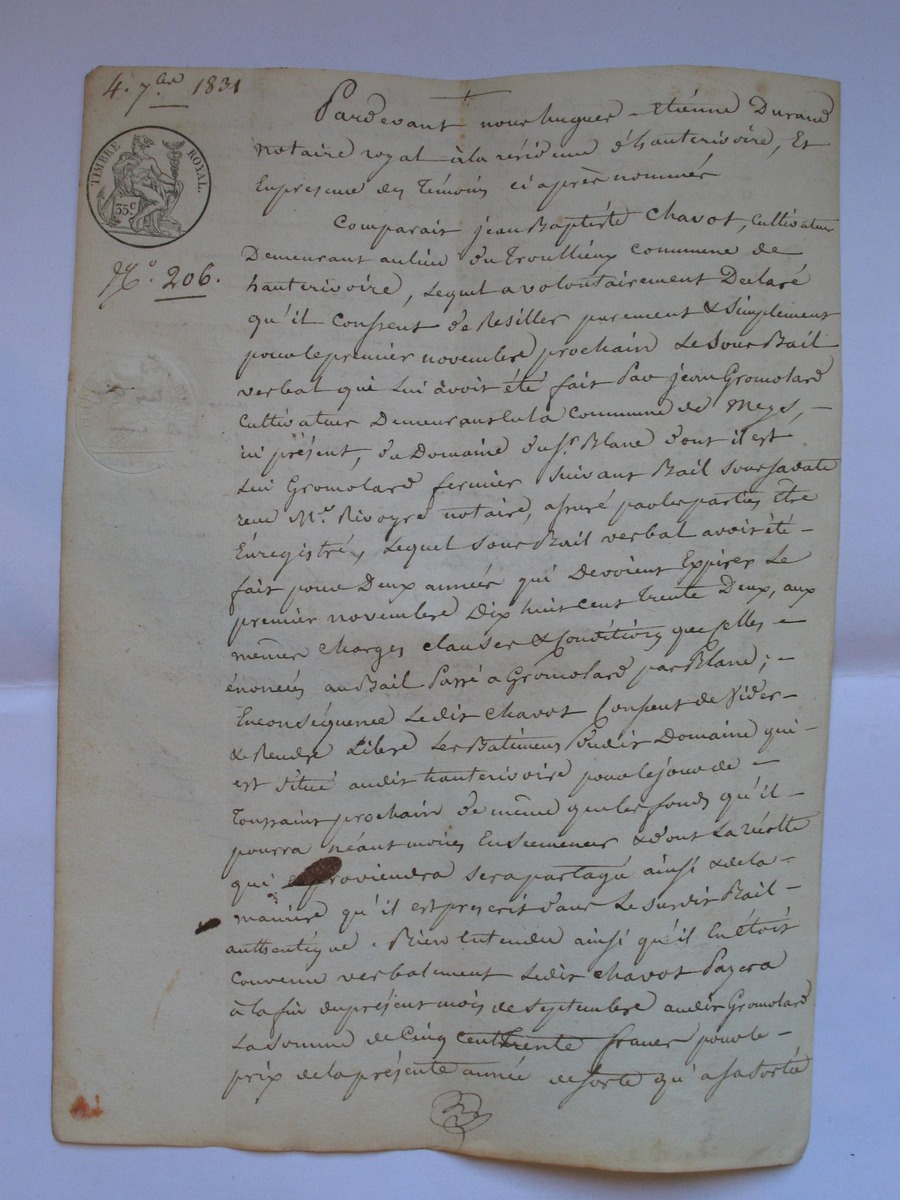 4. 7bre 1831
TIMBRE ROYAL.
35c
No. 206.
Pardevant nous hugues - étienne Durand
notaire royal à la résidence d'hauterivoire, Et
En presence des Témoins ci après nommés
Comparait jean Baptiste Chavot, Cultivateur
Demeurant au lieu du Troullieux commune de
hauterivoire, Lequel a volontairement Declaré
qu'il Consent de Resilier purement & Simplement
pour le premier novembre prochain Le Sous Bail
verbal qui Lui avoit été fait Par jean Gromolard
Cultivateur Demeurant en la Commune de Meys, -
ici présent, du Domaine du Sr. Blanc dont il est
Lui Gromolard fermier Suivant Bail Sous Sa date
reçu Me. Rivoyre notaire, assuré par les parties être
Enregistré, Lequel Sous Bail verbal avoit été -
fait pour Deux années qui Devoient Expirer Le
premier novembre Dix huit cent Trente Deux, aux
mêmes charges clauses & Conditions que celles -
énoncées au Bail Passé a Gromolard par Blanc ; -
En conséquence Ledit Chavot Consent de Vider -
& Rendre Libre Les Batimens dudit Domaine qui -
est situé audit hauterivoire pour le jour de -
Toussaint prochain de même que les fonds qu'il -
pourra néant moins Ensemencer & dont La récolte
qui proviendra sera partagé ainsi & de la -
manière qu'il est prescrit dans Le susdit Bail -
authentique. Bien Entendu ainsi qu'il En étoit
Convenu verbalement Ledit chavot Payera
à la fin du présent mois de Septembre audit Gromolard
La Somme de Cinq Cent Trente francs pour le -
prix de la présente année de sorte qu'a sa Sortie